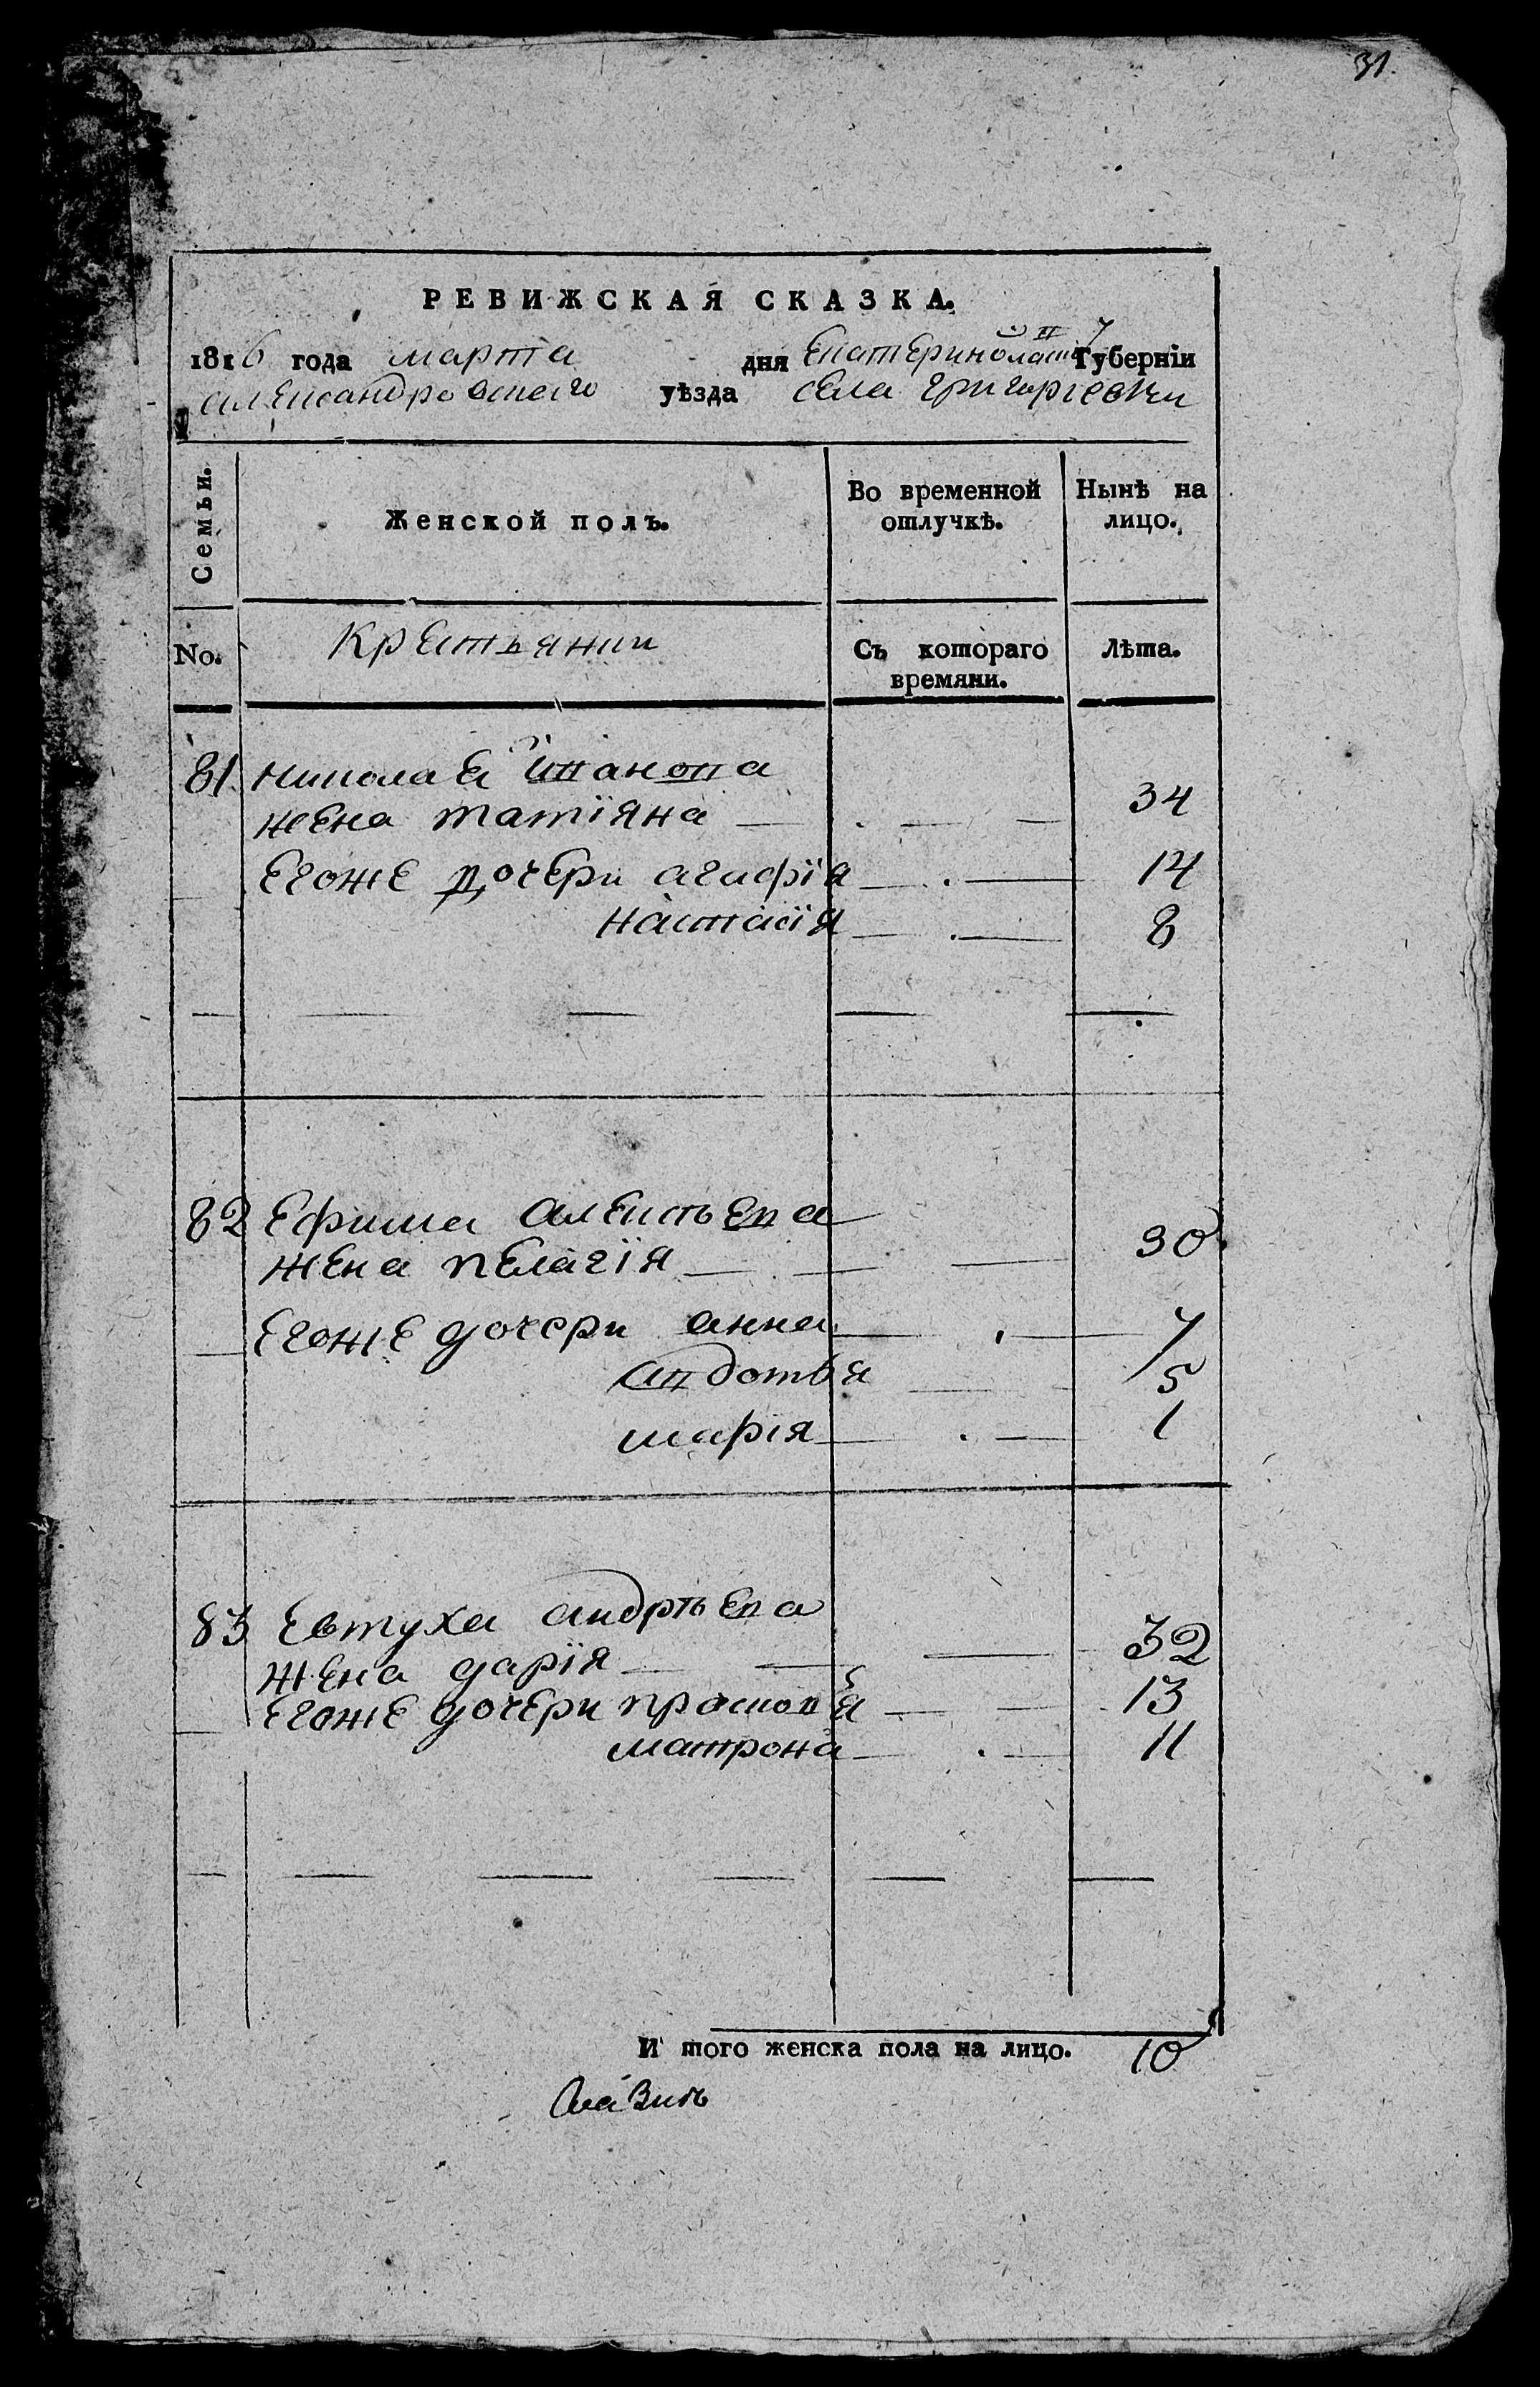 31.
РЕВИЖСКАЯ СКАЗКА.
1816 года марта дня Екатеринославской Губерніи
александровскаго уѣзда села григоріевки
Семьи.
Женской полъ.
Во временной отлучкѣ.
Нынѣ на лицо.
No.
Крестьянки
Съ котораго времяни.
Лѣта.
81 николая иванова
жена татіяна 34
Егоже дочери агафія 14
настасія 8
82 Ефима алексѣева
жена пелагія 30
Егоже дочери анна 7
авдотья 5
марія 1
83 Евтуха андрѣева
жена дарія 32
Егоже дочери прасковя 13
матрона 11
И того женска пола на лицо. 10